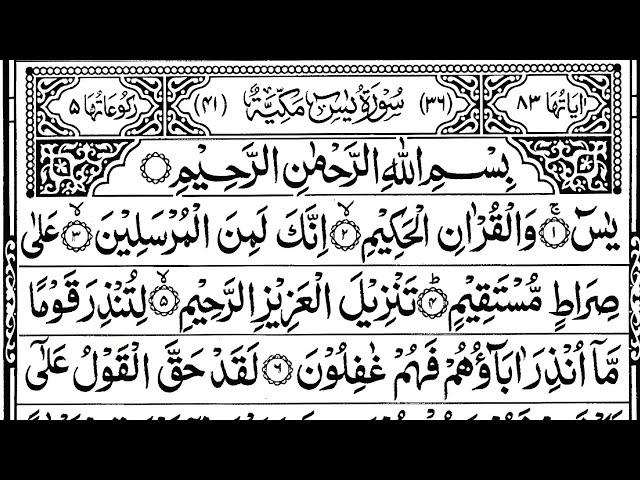 اٰیَاتُهَا ٨٣ (٣٦) سُوْرَةُ يٰسٓ مَكِّيَّةٌ (٤١) رُكُوْعَاتُهَا ٥
بِسْمِ اللّٰهِ الرَّحْمٰنِ الرَّحِيْمِ
يٰسٓ ۚ﴿١﴾ وَالْقُرْاٰنِ الْحَكِيْمِ ۙ﴿٢﴾ اِنَّكَ لَمِنَ الْمُرْسَلِيْنَ ۙ﴿٣﴾ عَلٰى
صِرَاطٍ مُّسْتَقِيْمٍ ؕ﴿٤﴾ تَنْزِيْلَ الْعَزِيْزِ الرَّحِيْمِ ۙ﴿٥﴾ لِتُنْذِرَ قَوْمًا
مَّآ اُنْذِرَ اٰبَآؤُهُمْ فَهُمْ غٰفِلُوْنَ ﴿٦﴾ لَقَدْ حَقَّ الْقَوْلُ عَلٰٓى